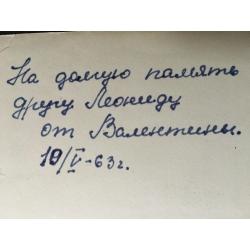 На долгую память
другу Леониду
от Валентины.
19/V-63г.